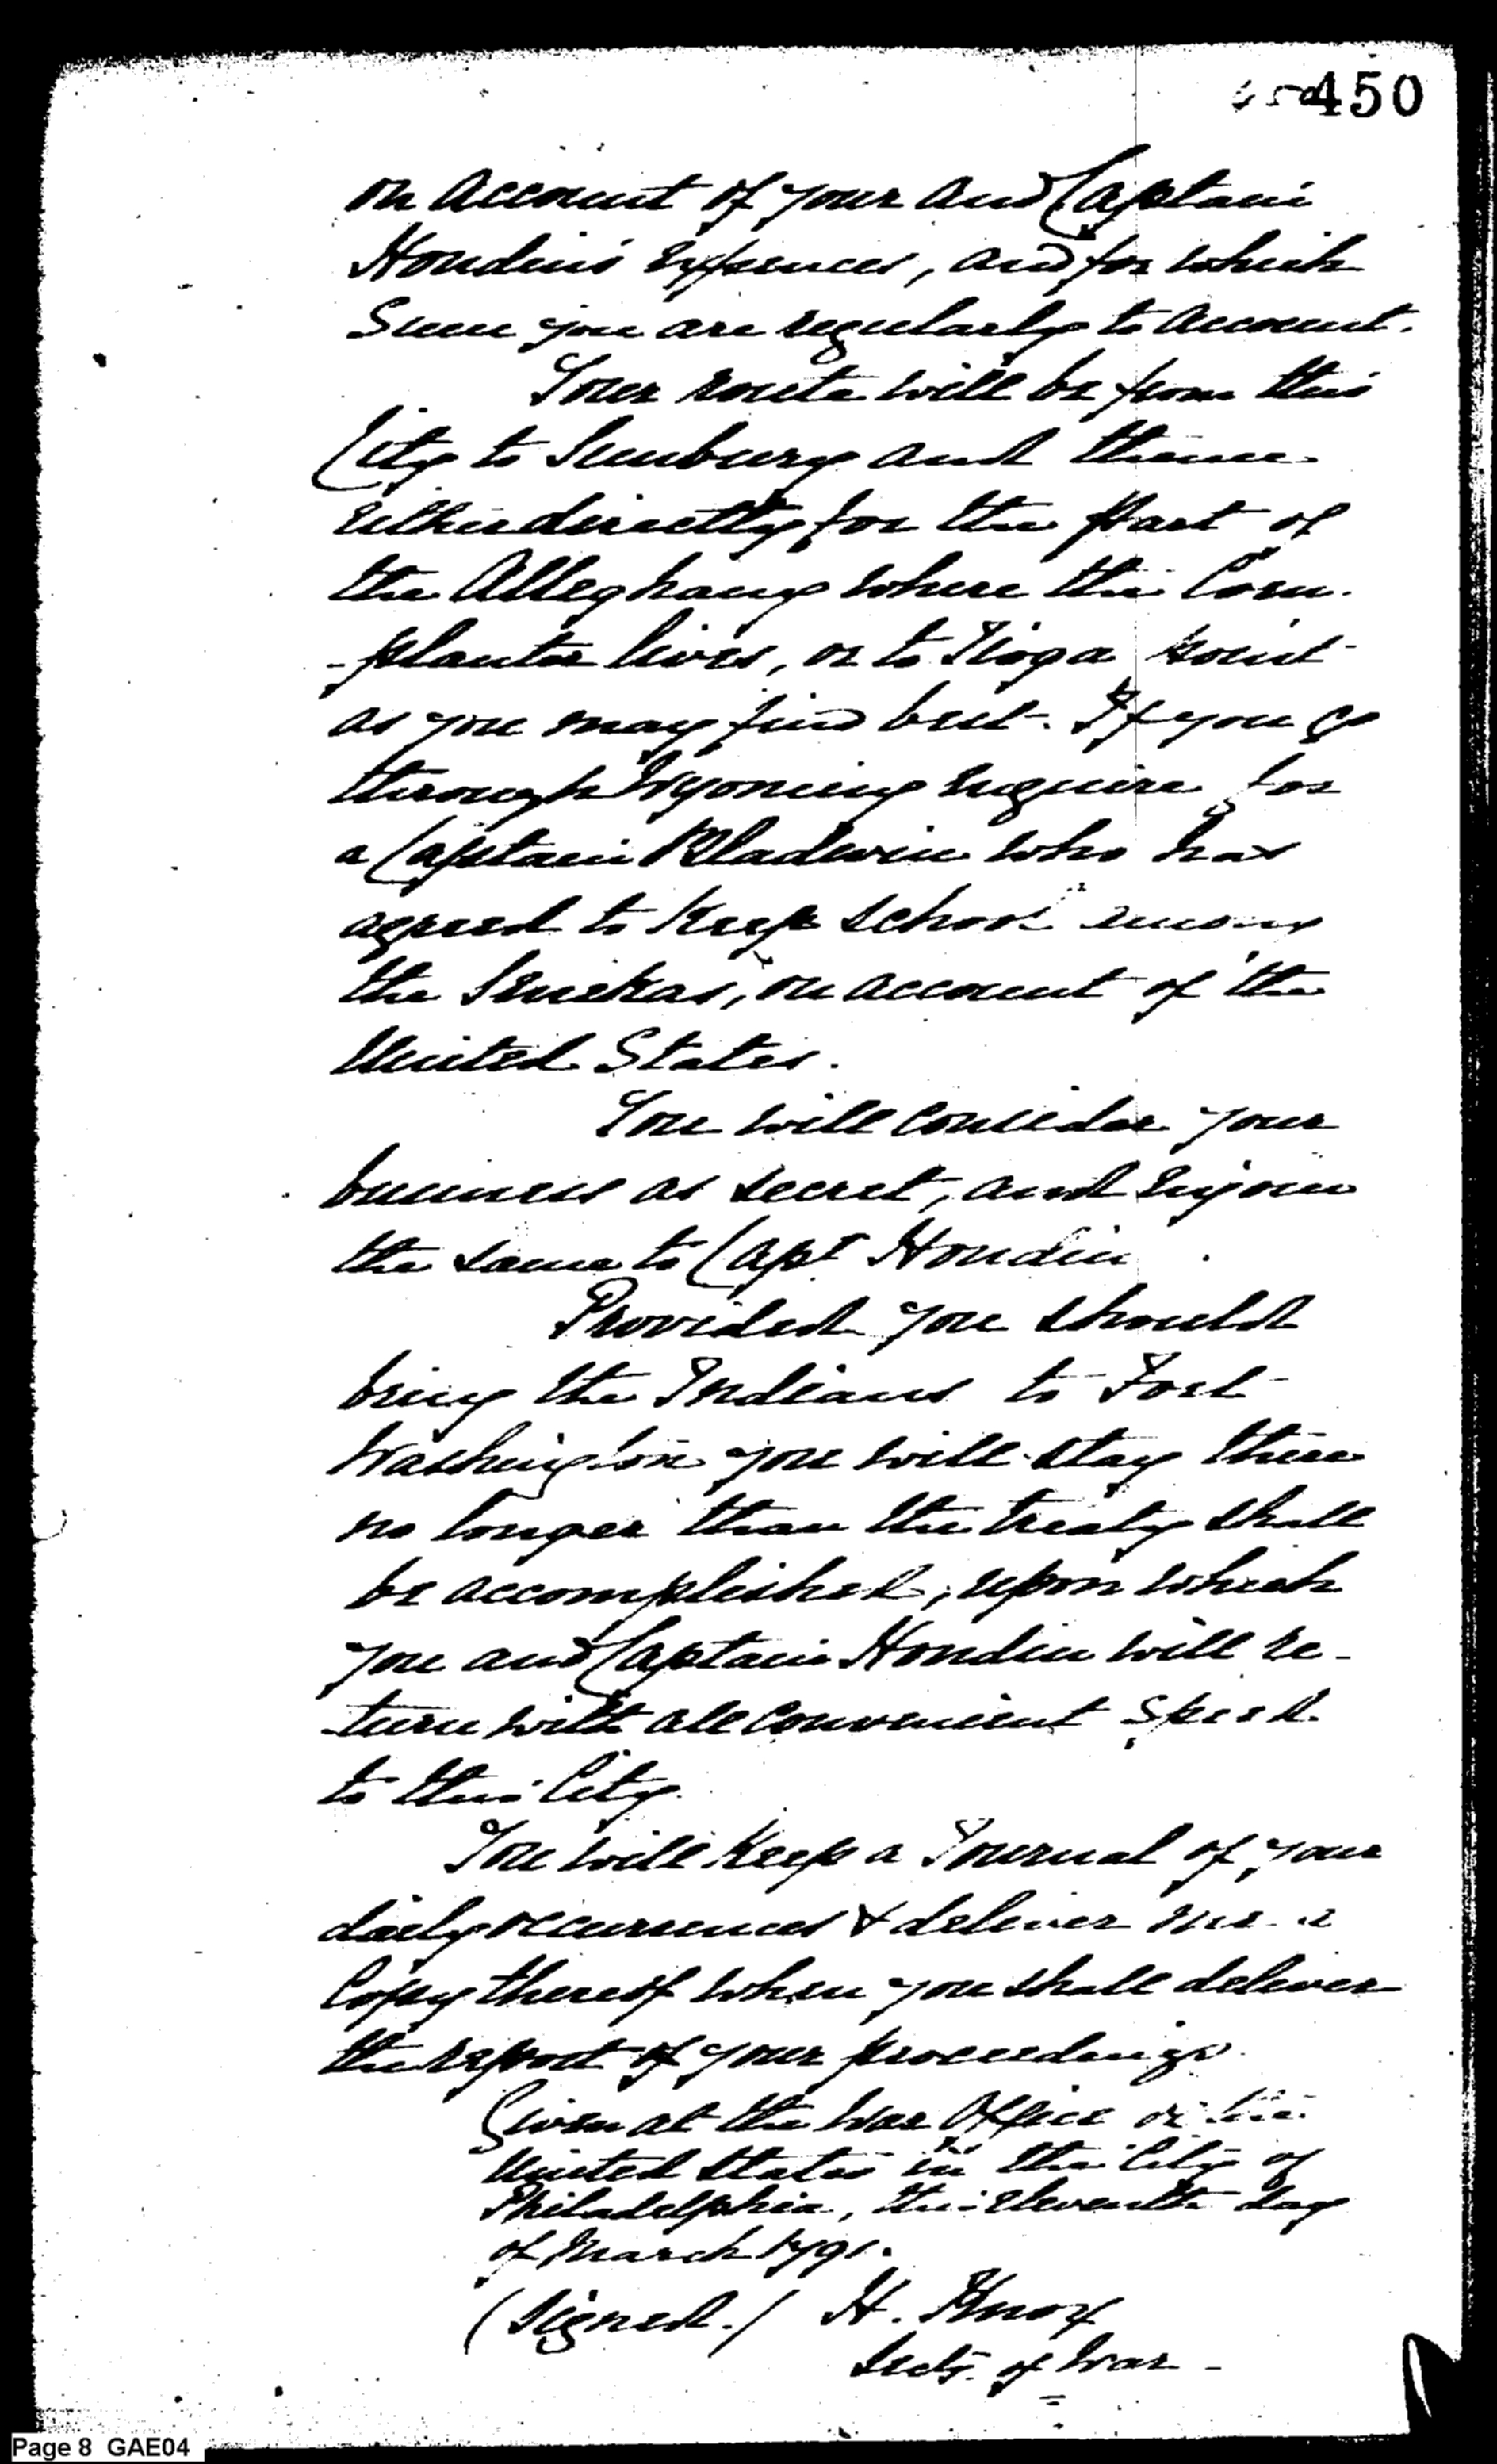 450
on account of your and Captain
Houdin's expences, and for which
Sum you are regularly to account.
Your route will be from this
City to Sunbury and thence
either directly for the part of
the Alleghany where the Corn-
-planter lives, or to Tioga point
as you may find best. If you go
through Wyoming enquire for
a Captain Bladwin who has
agreed to keep school among
the Senekas, on account of the
United States.
You will consider your
business as secret, and enjoin
the same to Capt Houdin
Provided you should
bring the Indians to Fort
Washington you will stay there
no longer than the treaty shall
be accomplished, upon which
you and Captain Houdin will re-
-turn with all convenient speed
to this City.
You will keep a Journal of your
daily occurrences & deliver me a
Copy thereof when you shall deliver
the report of your proceedings.
Given at the War Office of the
United States in the City of
Philadelphia, this eleventh day
of March 1791.
(signed.) H. Knox
Secty. of War -
Page 8 GAE04